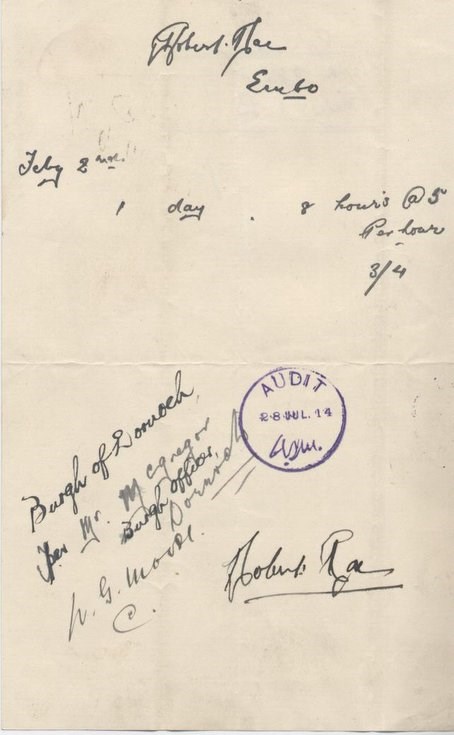 Robert. Rae
Embo
Feby 2nd.
1 day . 8 hours @ 5
Per hour
3/4
AUDIT
28 JUL. 14
Burgh of Dornoch,
Per Mr. Mcgregor
Burgh officer,
Dornoch
W. G. Moore.
C.
Robert Rae